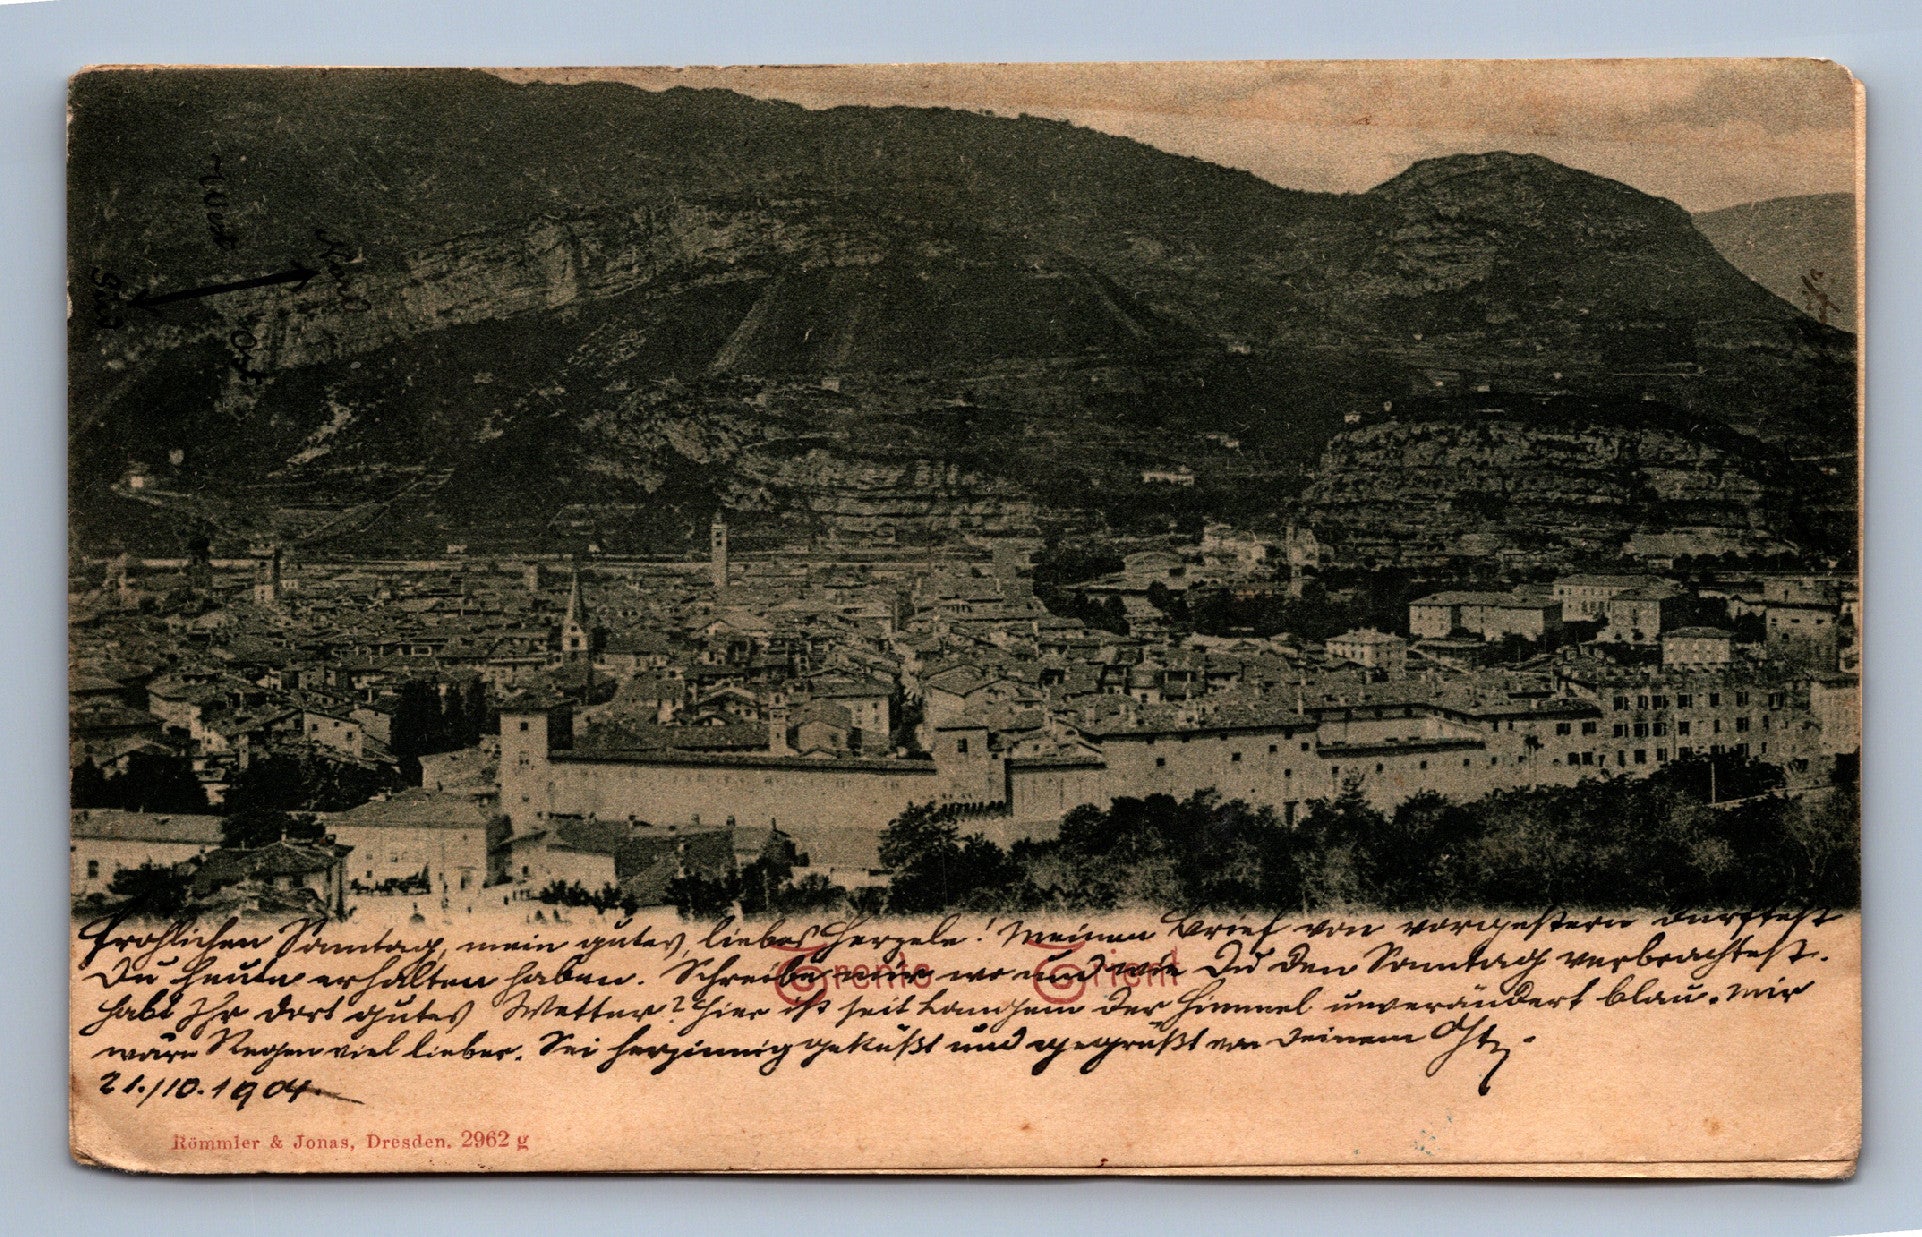 West
Nord
Süd
Ost
Fröhlichen Sonntag, mein gutes, liebes Herzele! Meinen Brief von vorgestern durftest
Du heute erhalten haben. Schreibe mir wo und wie Du den Sonntag verbrachtest.
Habt Ihr dort gutes Wetter? Hier ist seit Langem der Himmel unverändert blau. Mir
wäre Regen viel lieber. Sei herzinnig geküßt und gegrüßt von Deinem
21./10.1904.
Trento Trient
Römmler & Jonas, Dresden. 2962 g